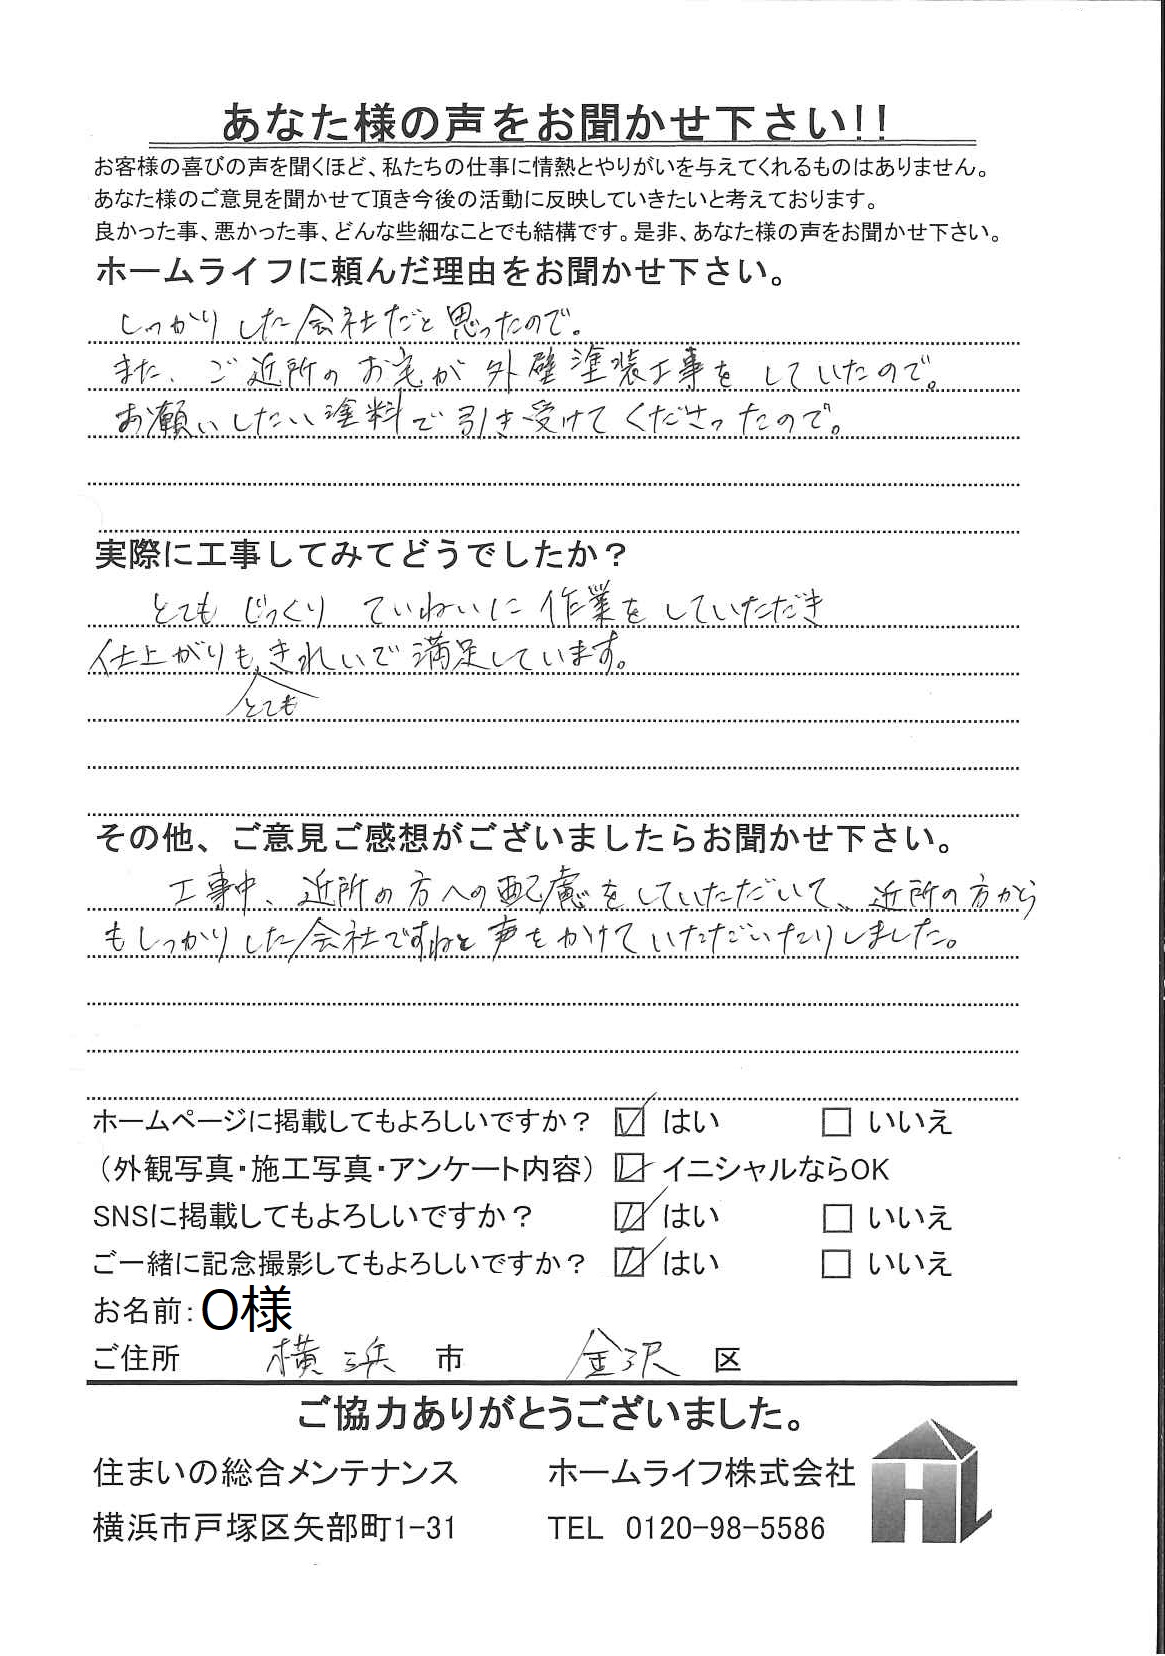 あなた様の声をお聞かせ下さい!!
お客様の喜びの声を聞くほど、私たちの仕事に情熱とやりがいを与えてくれるものはありません。
あなた様のご意見を聞かせて頂き今後の活動に反映していきたいと考えております。
良かった事、悪かった事、どんな些細なことでも結構です。是非、あなた様の声をお聞かせ下さい。
ホームライフに頼んだ理由をお聞かせ下さい。
しっかりした会社だと思ったので。
また、ご近所のお宅が外壁塗装工事をしていたので。
お願いしたい塗料で引き受けてくださったので。
実際に工事してみてどうでしたか?
とてもじっくりていねいに作業をしていただき
仕上がりもきれいで満足しています。
とても
その他、ご意見ご感想がございましたらお聞かせ下さい。
工事中、近所の方への配慮をしていただいて、近所の方から
もしっかりした会社ですねと声をかけていただいたりしました。
ホームページに掲載してもよろしいですか? ☑ はい □ いいえ
(外観写真・施工写真・アンケート内容) ☑ イニシャルならOK
SNSに掲載してもよろしいですか? ☑ はい □ いいえ
ご一緒に記念撮影してもよろしいですか? ☑ はい □ いいえ
お名前:O様
ご住所 横浜 市 金沢 区
ご協力ありがとうございました。
住まいの総合メンテナンス ホームライフ株式会社
横浜市戸塚区矢部町1-31 TEL 0120-98-5586
HL